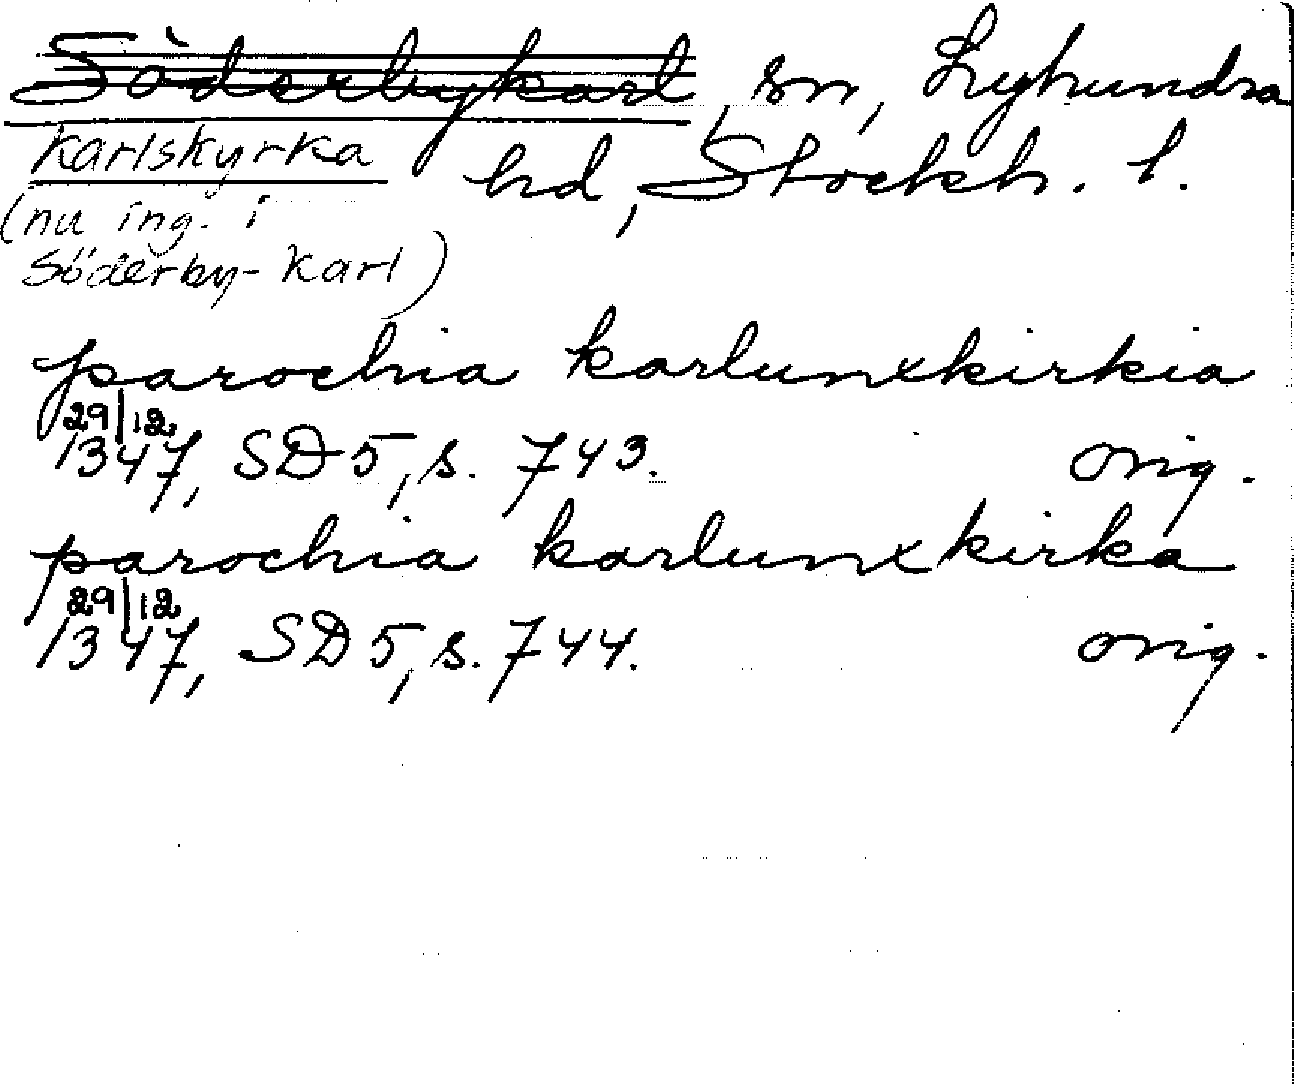 Söderbykarl, sn, Lyhundra
Karlskyrka hd, Stockh. l.
(nu ing. i
Söderby-Karl)
parochia karlunxkirkia
29/12
1347, SD 5, s. 743. orig.
parochia karlunxkirka
29/12
1347, SD 5, s. 744. orig.